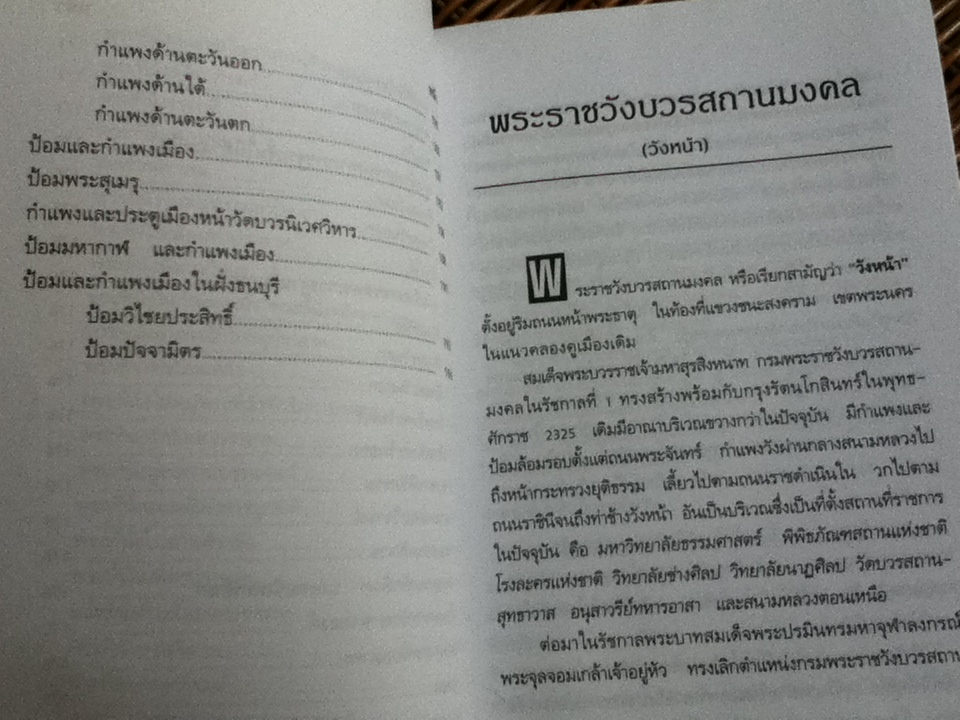 กำแพงด้านตะวันออก
กำแพงด้านใต้
กำแพงด้านตะวันตก
ป้อมและกำแพงเมือง
ป้อมพระสุเมรุ
กำแพงและประตูเมืองหน้าวัดบวรนิเวศวิหาร
ป้อมมหากาฬ และกำแพงเมือง
ป้อมและกำแพงเมืองในฝั่งธนบุรี
ป้อมวิไชยประสิทธิ์
ป้อมปัจจามิตร
พระราชวังบวรสถานมงคล
(วังหน้า)
พระราชวังบวรสถานมงคล หรือเรียกสามัญว่า “วังหน้า”
ตั้งอยู่ริมถนนหน้าพระธาตุ ในท้องที่แขวงชนะสงคราม เขตพระนคร
ในแนวคลองคูเมืองเดิม
สมเด็จพระบวรราชเจ้ามหาสุรสิงหนาท กรมพระราชวังบวรสถาน-
มงคลในรัชกาลที่ 1 ทรงสร้างพร้อมกับกรุงรัตนโกสินทร์ในพุทธ-
ศักราช 2325 เดิมมีอาณาบริเวณกว้างขวางกว่าในปัจจุบัน มีกำแพงและ
ป้อมล้อมรอบตั้งแต่ถนนพระจันทร์ กำแพงวังผ่านกลางสนามหลวงไป
ถึงหน้ากระทรวงยุติธรรม เลี้ยวไปตามถนนราชดำเนินใน วกไปตาม
ถนนราชินีจนถึงท่าช้างวังหน้า อันเป็นบริเวณซึ่งเป็นที่ตั้งสถานที่ราชการ
ในปัจจุบัน คือ มหาวิทยาลัยธรรมศาสตร์ พิพิธภัณฑสถานแห่งชาติ
โรงละครแห่งชาติ วิทยาลัยช่างศิลป วิทยาลัยนาฏศิลป วัดบวรสถาน-
สุทธาวาส อนุสาวรีย์ทหารอาสา และสนามหลวงตอนเหนือ
ต่อมาในรัชกาลพระบาทสมเด็จพระปรมินทรมหาจุฬาลงกรณ์
พระจุลจอมเกล้าเจ้าอยู่หัว ทรงเลิกตำแหน่งกรมพระราชวังบวรสถาน